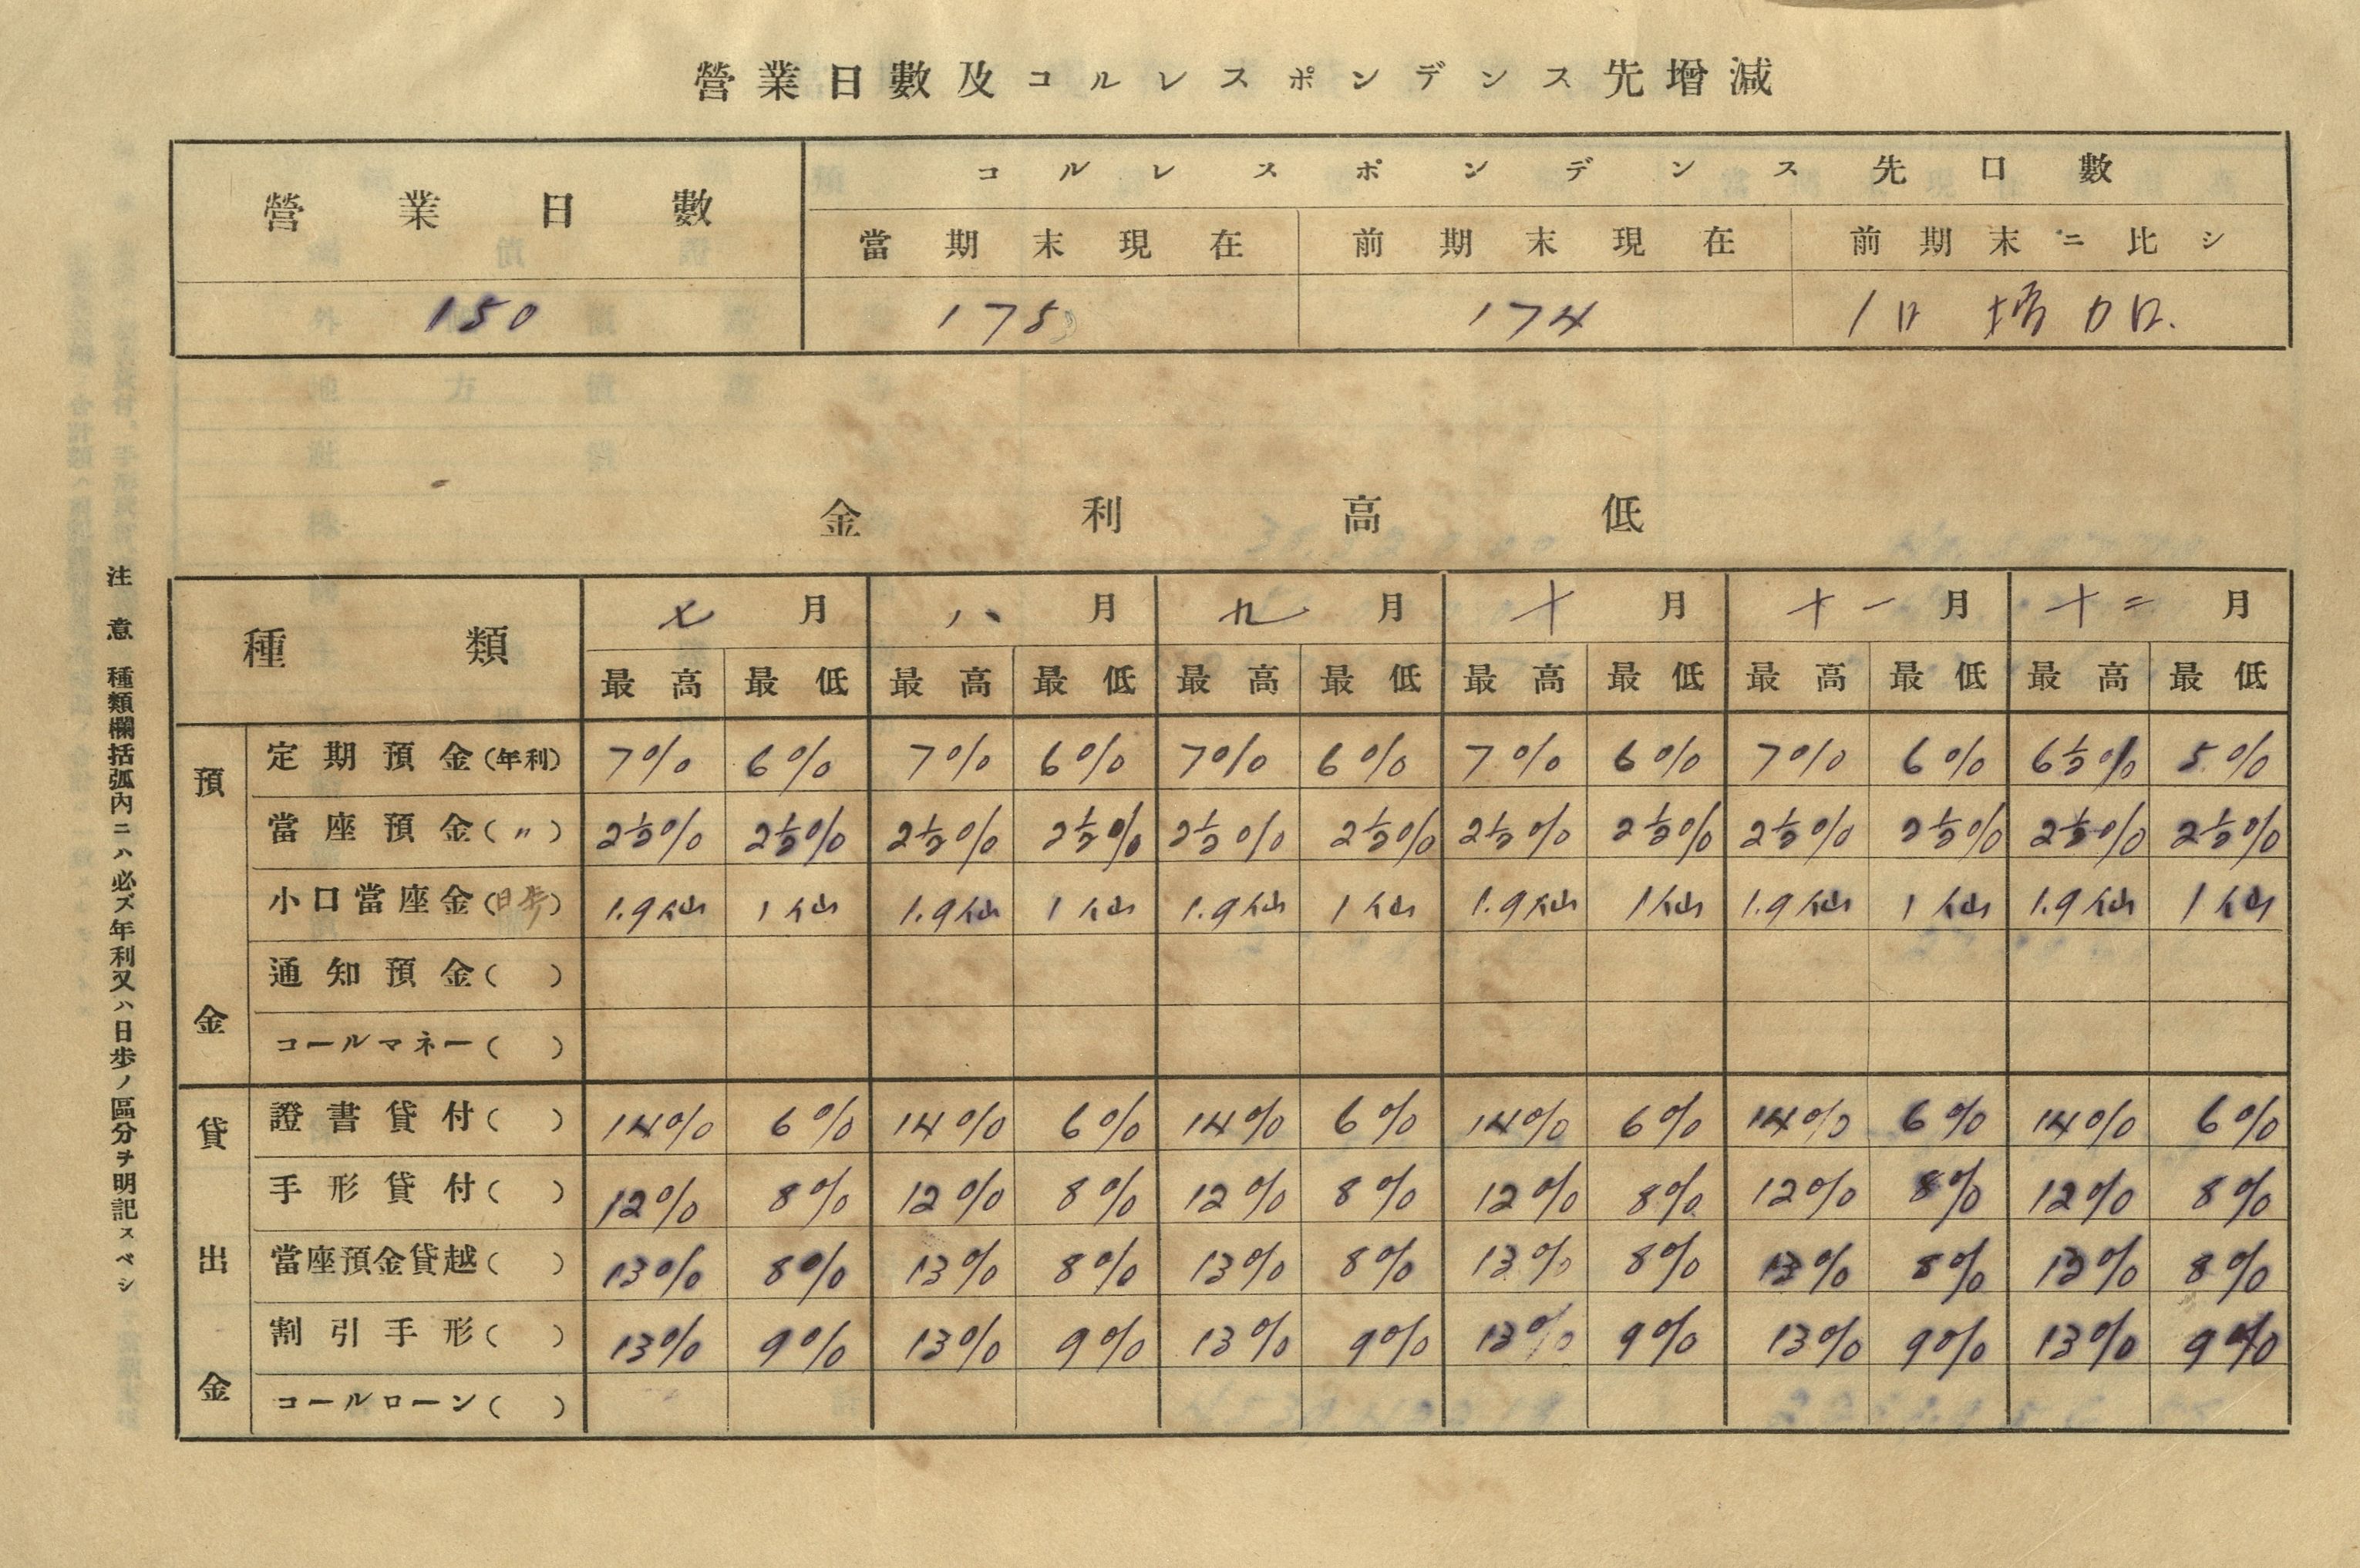 營業日數及コルレスポンデンス先增減
營業日數 コルレスポンデンス先口數
當期末現在 前期末現在 前期末ニ比シ
150 175 174 1口 增加
金利高低
種類 七月 八月 九月 十月 十一月 十二月
最高 最低 最高 最低 最高 最低 最高 最低 最高 最低 最高 最低
預金
定期預金(年利) 7% 6% 7% 6% 7% 6% 7% 6% 7% 6% 6½% 5%
當座預金(〃) 2½% 2½% 2½% 2½% 2½% 2½% 2½% 2½% 2½% 2½% 2½% 2½%
小口當座金(日歩) 1.9仙 1仙 1.9仙 1仙 1.9仙 1仙 1.9仙 1仙 1.9仙 1仙 1.9仙 1仙
通知預金( )
コールマネー( )
貸出金
證書貸付( ) 14% 6% 14% 6% 14% 6% 14% 6% 14% 6% 14% 6%
手形貸付( ) 12% 8% 12% 8% 12% 8% 12% 8% 12% 8% 12% 8%
當座預金貸越( ) 13% 8% 13% 8% 13% 8% 13% 8% 13% 8% 13% 8%
割引手形( ) 13% 9% 13% 9% 13% 9% 13% 9% 13% 9% 13% 9%
コールローン( )
注意 種類欄括弧內ニハ必ズ年利又ハ日歩ノ區分ヲ明記スベシ